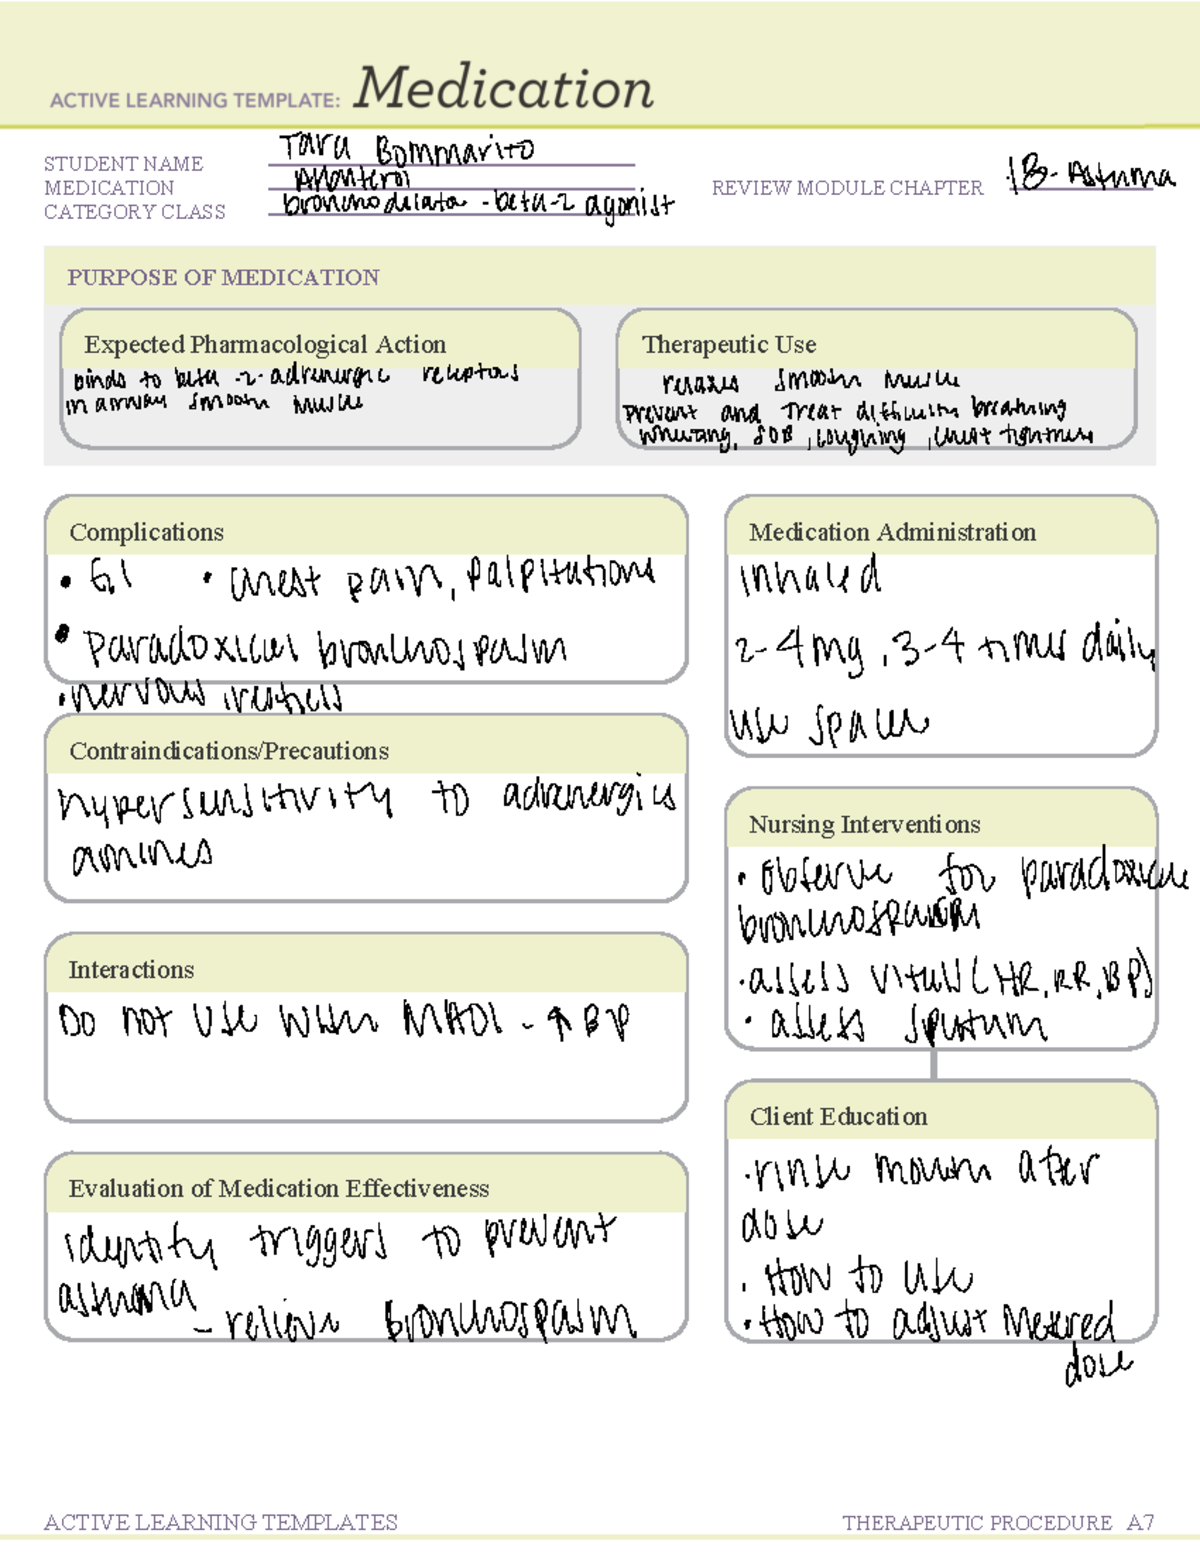 ACTIVE LEARNING TEMPLATE: Medication
STUDENT NAME Tara Bommarito
MEDICATION Albuterol
CATEGORY CLASS bronchodilator - beta-2 agonist
REVIEW MODULE CHAPTER 18- Asthma
PURPOSE OF MEDICATION
Expected Pharmacological Action
binds to beta-2-adrenergic receptors
in airway smooth muscle
Therapeutic Use
relaxes smooth muscle
prevent and treat difficulty breathing
wheezing, SOB, coughing, chest tightness
Complications
• GI • chest pain, palpitations
• paradoxical bronchospasm
• nervous, restless
Contraindications/Precautions
hypersensitivity to adrenergics
amines
Interactions
DO not use when MAOI - ↑ BP
Evaluation of Medication Effectiveness
identity triggers to prevent
asthma
- relieve bronchospasm
Medication Administration
inhaled
2-4mg, 3-4 times daily
use spacer
Nursing Interventions
• Observe for paradoxical
bronchospasm
• assess vitals (HR, RR, BP)
• assess sputum
Client Education
• rinse mouth after
dose
• How to use
• How to adjust Metered
dose
ACTIVE LEARNING TEMPLATES
THERAPEUTIC PROCEDURE A7